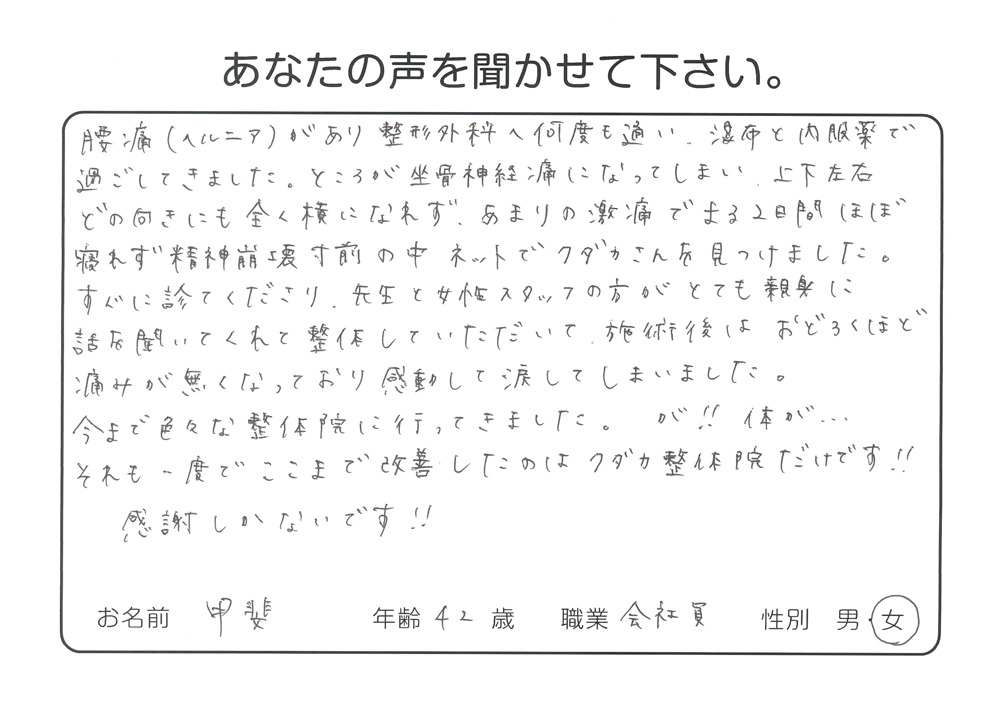 あなたの声を聞かせて下さい。
腰痛(ヘルニア)があり整形外科へ何度も通い、湿布と内服薬で
過ごしてきました。ところが坐骨神経痛になってしまい、上下左右
どの向きにも全く横になれず、あまりの激痛でまる2日間ほぼ
寝れず精神崩壊寸前の中ネットでクダカさんを見つけました。
すぐに診てくださり、先生と女性スタッフの方がとても親身に
話を聞いてくれて整体していただいて、施術後はおどろくほど
痛みが無くなっており感動して涙してしまいました。
今まで色々な整体院に行ってきました。が!!体が…
それも一度でここまで改善したのはクダカ整体院だけです!!
感謝しかないです!!
お名前 甲斐 年齢 42 歳 職業 会社員 性別 男・女